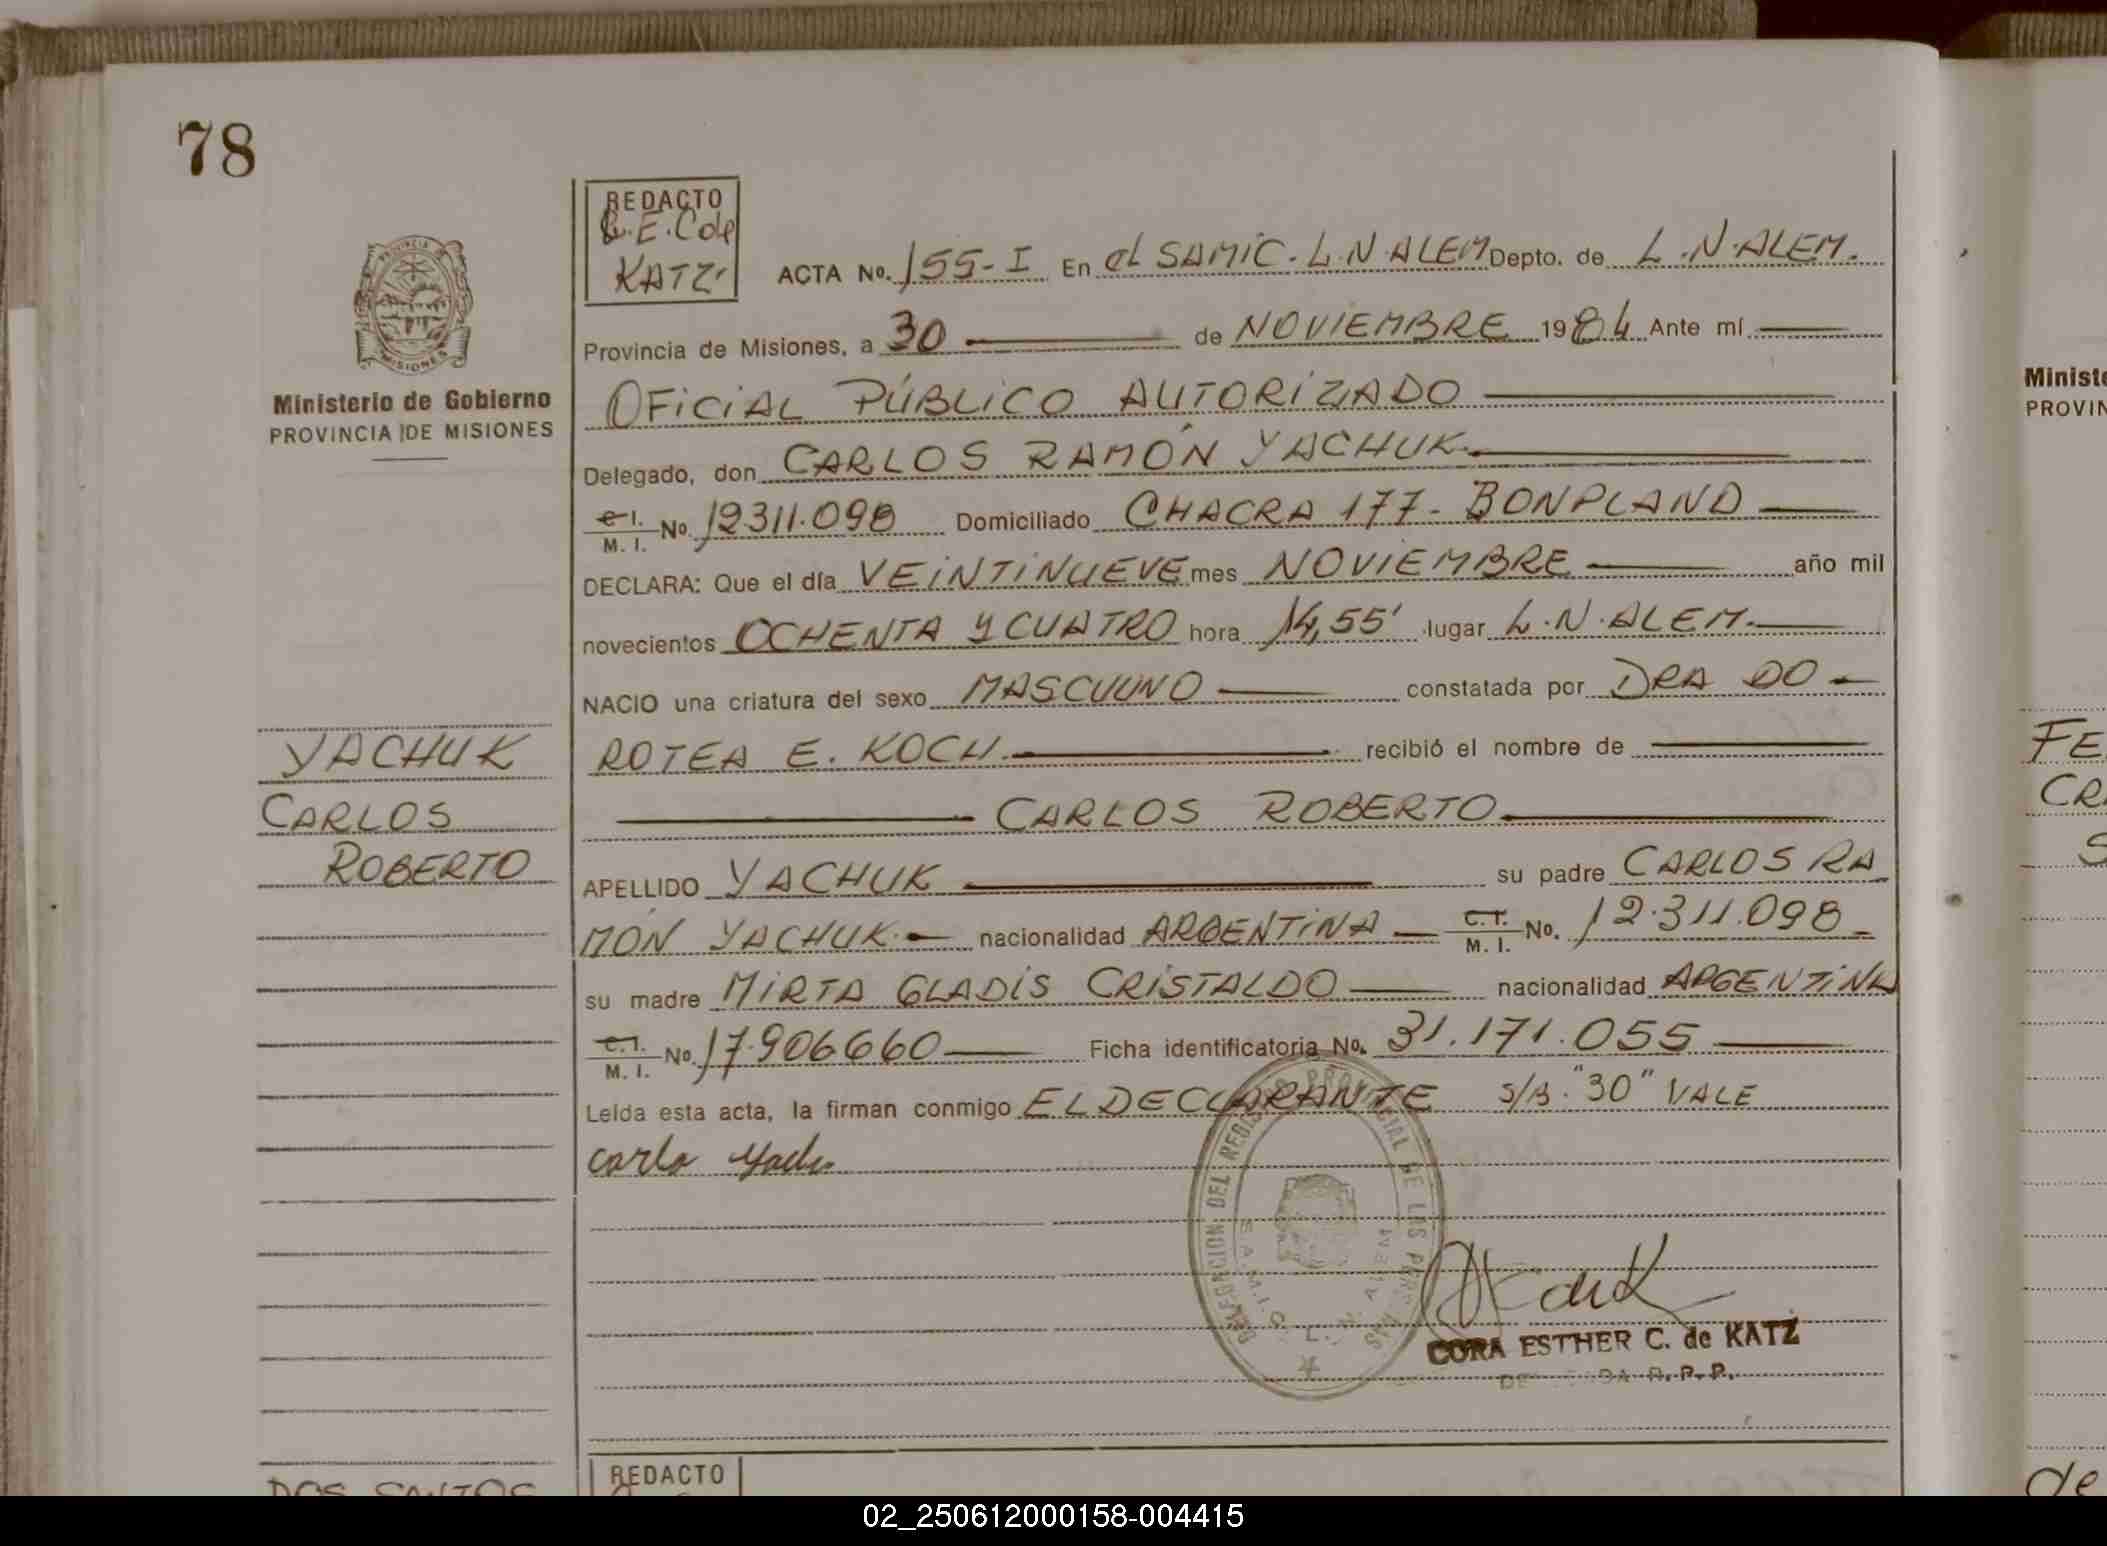 78
REDACTO
C.E.C de
KATZ.
PROVINCIA DE
MISIONES
Ministerio de Gobierno
PROVINCIA DE MISIONES
ACTA No. 155-I En el SAMIC. L.N.ALEM Depto. de L.N.ALEM.
Provincia de Misiones, a 30 de NOVIEMBRE 1984 Ante mí
OFICIAL PÚBLICO AUTORIZADO
Delegado, don CARLOS RAMÓN YACHUK.
C.I. M.I. No. 12311.098 Domiciliado CHACRA 177- BONPLAND
DECLARA: Que el día VEINTINUEVE mes NOVIEMBRE año mil
novecientos OCHENTA Y CUATRO hora 14,55' lugar L.N.ALEM.
NACIO una criatura del sexo MASCULINO constatada por DRA DO-
ROTEA E. KOCH. recibió el nombre de
CARLOS ROBERTO
APELLIDO YACHUK su padre CARLOS RA
MÓN YACHUK.- nacionalidad ARGENTINA - C.I. M.I. No. 12.311.098-
su madre MIRTA GLADIS CRISTALDO nacionalidad ARGENTINA
C.I. M.I. No. 17.906660 Ficha identificatoria No. 31.171.055
Leída esta acta, la firman conmigo EL DECLARANTE S/B. "30" VALE
YACHUK
CARLOS
ROBERTO
DELEGACION DEL REGISTRO PROVINCIAL DE LAS PERSONAS
S.A.M.I.C. L. N. ALEM
CORA ESTHER C. de KATZ
R. P. P.
DOS SANTOS
REDACTO
Ministe
PROVIN
FE
CR
S
de
02_250612000158-004415